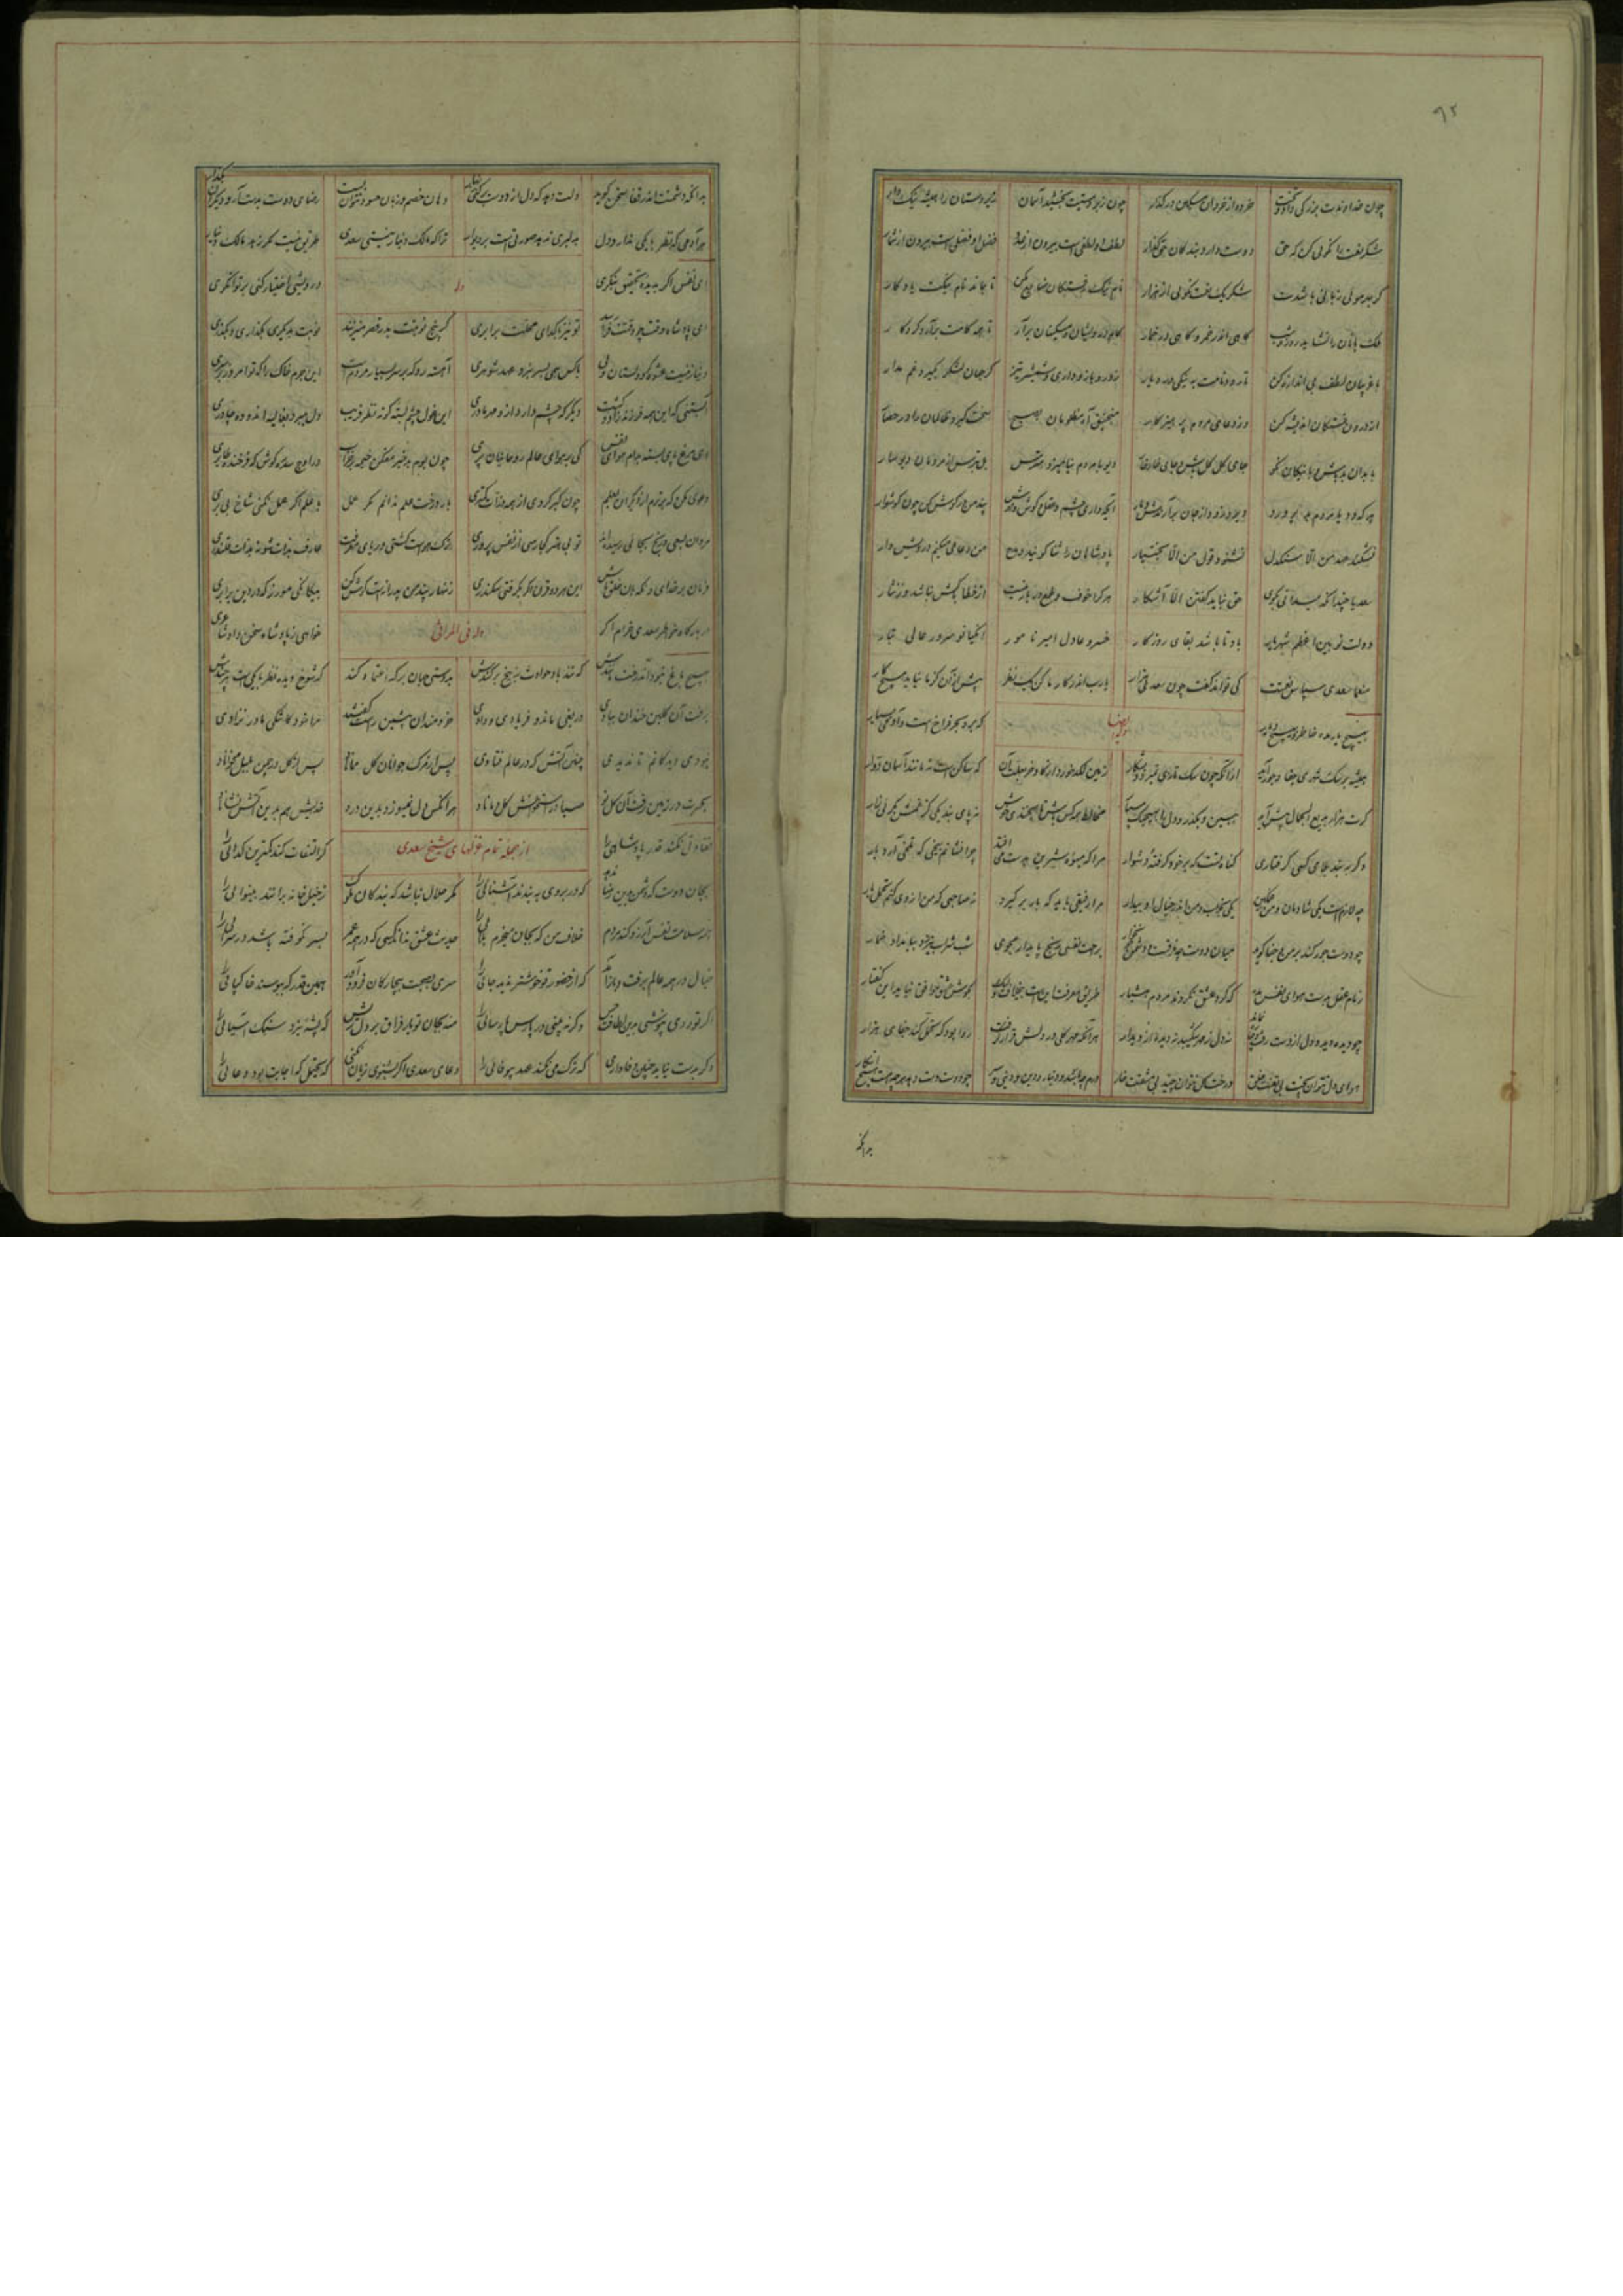 ۹۲
چون خداوندت بزرگی داد و حکم خرده از خردان مسکین در گذار چون زبردستیت بخشید آسمان زیردستان را همیشه نیک دار
شکر نعمت را نکوئی کن که حق دوست دارد بندگان حق گزار لطف او لطفی است بیرون از عدد فضل او فضلی است بیرون از شمار
گر بهر موئی زبانی باشدت شکر یک نعمت نگوئی از هزار نام نیک رفتگان ضایع مکن تا بماند نام نیکت یادگار
ملک بانان را نشاید روز و شب گاهی اندر خمر و گاهی در خمار کام درویشان و مسکینان برآر تا همه کامت برآرد کردگار
با غریبان لطف بی اندازه کن تا رود نامت به نیکی در دیار زور بازو داری و شمشیر تیز گر جهان لشکر بگیرد غم مدار
از درون خستگان اندیشه کن وز دعای مردم پرهیزکار منجنیق آه مظلومان بصبح سخت گیرد ظالمان را در حصار
با بدان بد باش و با نیکان نکو جای گل گل باش و جای خار خار دیو با مردم نیامیزد مترس بل بترس از مردمان دیوسار
هر که دد یا مردم بد پرورد دیر و زود از جان برآرندش دمار آنچه داری چشم و عقل و گوش و هوش پند من در گوش کن چون گوشوار
نشکند عهد من الا سنگدل نشنود قول من الا بختیار پادشاهان را ثنا گویند و مدح من دعائی میکنم درویش وار
سعدیا چندانکه میدانی بگوی حق نباید گفتن الا آشکار هر کرا خوف و طمع در بار نیست از خطا باکش نباشد وز تتار
دولت نوئین اعظم شهریار باد تا باشد بقای روزگار خسرو عادل امیر نامور انکیانو سرور عالی تبار
منعما سعدی سپاس نعمتت کی تواند گفت چون سعدی هزار یارب اندر کار ما کن یک نظر پیش از آن کز ما نیاید هیچ کار
بهیچ یار مده خاطر و بهیچ دیار که بر و بحر فراخ است و آدمی بسیار
ایضا
همیشه بر سک شهری جفا و جور آید از آنکه چون سک تازی نمیرود بشکار زمین لگد خورد از گاو و خر بعلت آن که ساکن است نه مانند آسمان دوار
گرت هزار بدیع الجمال پیش آید ببین و بگذر و دل را بهیچیک مسپار مخالط همه کس باش تا بخندی خوش نه پای بند یکی کز غمش بگریی زار
وگر به بند بلای کسی گرفتاری گناه تست که بر خود گرفته دشوار مرا که میوه شیرین بدست می افتد چرا نشانم بیخی که تلخی آرد بار
چه لازم است یکی شادمان و من غمگین یکی بخواب و من اندر خیال او بیدار مرا رفیقی باید که بار برگیرد نه صاحبی که من از وی کنم تحمل بار
چو دوست جور کند بر من و جفا گوید میان دوست چه فرقست و دشمن براحت نفسی رنج پایدار مجوی شب شراب نیرزد ببامداد خمار
زمام عقل بدست هوای نفس مده که گرد عشق نگردند مردم هشیار طریق معرفت این است بیخلاف ولیک بگوش عشق موافق نیاید این گفتار
چو دیده دید و دل از دست رفت و چاره نماند نه دل ز مهر شکیبد نه دیده از دیدار هر آنکه مهر گلی در دلش قرار گرفت روا بود که تحمل کند جفای هزار
هوای دل نتوان پخت بی تعنت خلق درخت گل نتوان چید بی مشقت خار درم چه باشد و دینار و دین و دنیی و سر چو دوست دست دهد هر چه هست هیچ انگار
بدانکه
بدانکه دشمنت اندر قفا سخن گوید دلت دهد که دل از دوست برکنی زنهار دهان خصم و زبان حسود نتوان بست رضای دوست بدست آر و دیگران بگذار
هر آدمی که نظر با یکی ندارد و دل بدلبری ندهد صورتی است بر دیوار ترا که مالک دینار نیستی سعدی طریق نیست مگر زهد مالک دینار
ای نفس اگر بدیده تحقیق بنگری درویشی اختیار کنی بر توانگری
وله
ای پادشاه وقت چو وقتت فرا رسد تو نیز با گدای محلت برابری گر پنج نوبتت بدر قصر میزنند نوبت بدیگری بگذاری و بگذری
دنیا زنیست عشوه ده و دلستان ولی با کس بسر نبرد عهد شوهری آهسته رو که بر سر بسیار مردم است این جرم خاک را که تو امروز بر سری
آبستنی که این همه فرزند زاد و کشت دیگر که چشم دارد ازو مهر مادری این غول روی بسته کوته نظر فریب دل میبرد بغالیه اندوده چادری
ای مرغ پای بسته بدام هوای نفس کی بر هوای عالم روحانیان پری چون بوم بدخبر مفکن سایه بر خراب در اوج سدره کوش که فرخنده طایری
دعوی مکن که برترم از دیگران بعلم چون کبر کردی از همه دونان فروتری بار درخت علم ندانم مگر عمل با علم اگر عمل نکنی شاخ بی بری
مردان بسعی و رنج بجائی رسیده اند تو بی هنر کجا رسی از نفس پروری
فرمان بر خدای و نگهبان خلق باش این هر دو قرن اگر بگرفتی سکندری زنهار پند من پدرانه است گوش کن بیگانگی مورز که در دین برادری
در بارگاه خاطر سعدی خرام اگر خواهی ز پادشاه سخن داد شاعری
وله فی المراثی
بهیچ باغ نبود آن درخت مانندش که تندباد حوادث ز بیخ برکندش بدوستی جهان بر که اعتماد کند که شوخ دیده نظر با یکی است هر چندش
برفت آن گلبن خندان ببادی دریغی ماند و فریادی و یادی خردمندان پیشین راست گفتند مرا خود کاشکی مادر نزادی
نبودی دیدگانم تا ندیدی چنین آتش که در عالم فتادی پس از مرگ جوانان گل مماناد پس از گل در چمن بلبل مخواناد
بحسرت در زمین رفت آن گل نو صبا بر استخوانش گل دماناد هر آنکس دل نمیسوزد بدین درد خدایش هم بدین آتش نشاناد
تفاوتی نکند قدر پادشائی را گر التفات کند کمترین گدائی را
از جمله تمام غزلهای شیخ سعدی
بجان دوست که دشمن بدین رضا ندهد که در بروی به بندند آشنائی را مگر حلال نباشد که بندگان ملوک ز خیل خانه برانند بینوائی را
همه سلامت نفس آرزو کند مردم خلاف من که بجان میخرم بلائی را حدیث عشق نداند کسی که در همه عمر بسر نکوفته باشد در سرائی را
خیال در همه عالم برفت و باز آمد که از حضور تو خوشتر ندید جائی را سری بصحبت بیچارگان فرود آور همین قدر که ببوسند خاک پائی را
اگر تو روی بپوشی بدین لطافت و حسن دگر نه بینی در پارس پارسائی را منه بجان تو بار فراق بر دل ریش که پشه نبرد سنگ آسیائی را
دگر بدست نیاید چو من وفاداری که ترک می نکند عهد بیوفائی را دعای سعدی اگر بشنوی زیان نکنی که یحتمل که اجابت بود دعائی را